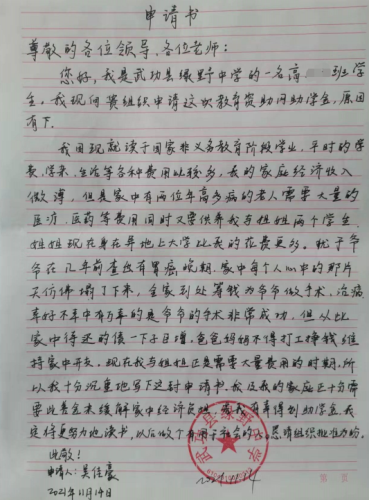 申请书
尊敬的各位领导、各位老师：
您好，我是武功县绿野中学的一名高 班学
生。我现向贵组织申请这次教育资助问助学金，原因
有下。
我因现就读于国家非义务教育阶段学业，平时的学
费，学杂，生活等各种费用比较多，我的家庭经济收入
微薄，但是家中有两位年高多病的老人需要大量的
医疗，医药等费用同时又要供养我与姐姐两个学生
姐姐现在身在异地上大学比我的花费更多。犹于爷
爷在几年前查出有胃癌晚期，家中每个人心中的那片
天仿佛塌了下来，全家到处筹钱为爷爷做手术，治病
幸好不幸中有万幸的是爷爷的手术非常成功，但从此
家中得还的债一下子日增。爸爸妈妈不得打工挣钱维
持家中开支，现在我与姐姐正是需要大量费用的时期，所
以我十分沉重地写下这封申请书。我及我的家庭正十分需
要此基金来缓解家中经济负担，若我有幸得到助学金我
定将更努力地读书，以后做个有用于社会的人，恳请组织批准为盼。
此致！
申请人：吴佳豪
2021年11月14日
2021.11.14